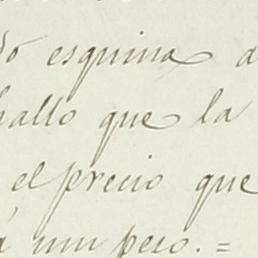 do esquina a
hallo que la
el precio que
á un peso. =